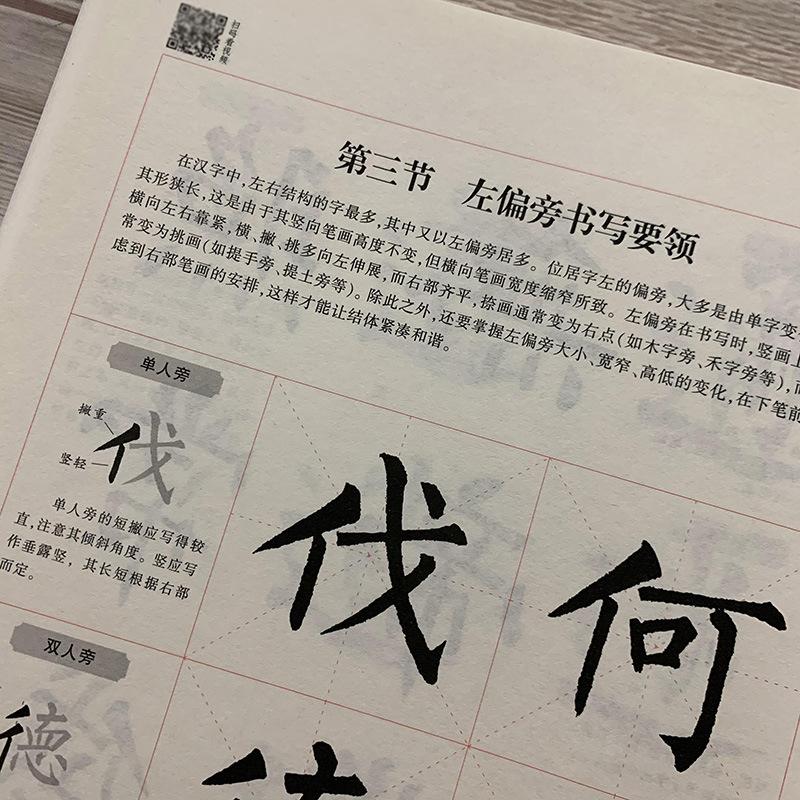 扫码看视频
第三节 左偏旁书写要领
在汉字中,左右结构的字最多,其中又以左偏旁居多。位居字左的偏旁,大多是由单字变
其形狭长,这是由于其竖向笔画高度不变,但横向笔画宽度缩窄所致。左偏旁在书写时,竖画上
横向左右靠紧,横、撇、挑多向左伸展,而右部齐平,捺画通常变为右点(如木字旁、禾字旁等),而
常变为挑画(如提手旁、提土旁等)。除此之外,还要掌握左偏旁大小、宽窄、高低的变化,在下笔前
虑到右部笔画的安排,这样才能让结体紧凑和谐。
单人旁
撇重
竖轻
伐
单人旁的短撇应写得较
直,注意其倾斜角度。竖应写
作垂露竖，其长短根据右部
而定。
伐 何
双人旁
德